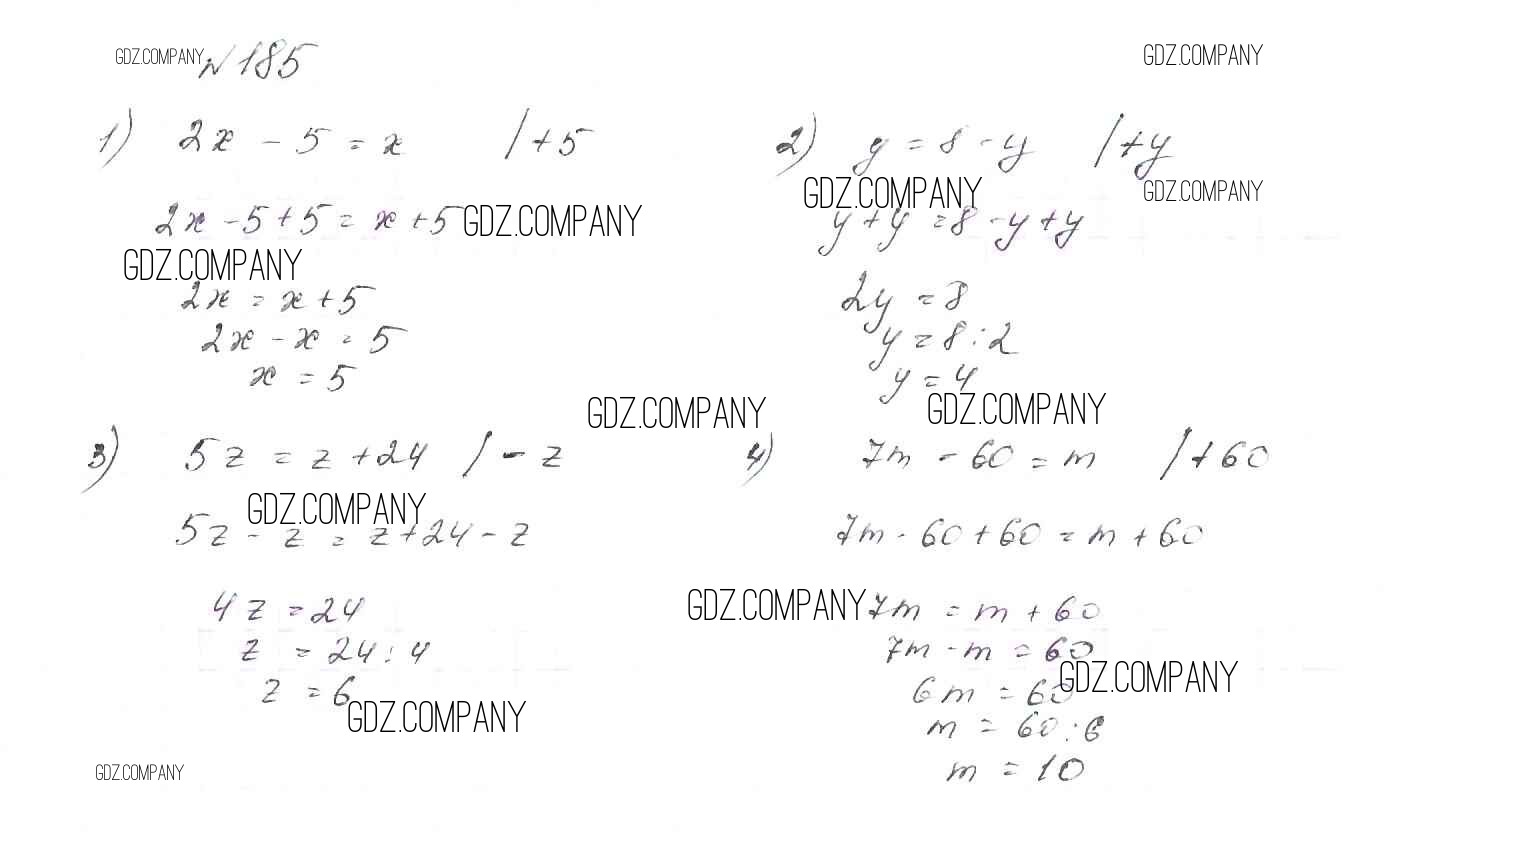 GDZ.COMPANY №185 GDZ.COMPANY
1) 2x - 5 = x /+5
2x - 5 + 5 = x + 5 GDZ.COMPANY
GDZ.COMPANY
2x = x + 5
2x - x = 5
x = 5
2) y = 8 - y /+y
GDZ.COMPANY GDZ.COMPANY
y + y = 8 - y + y
2y = 8
y = 8 : 2
y = 4
GDZ.COMPANY GDZ.COMPANY
3) 5z = z + 24 /- z
GDZ.COMPANY
5z - z = z + 24 - z
4z = 24
z = 24 : 4
z = 6
GDZ.COMPANY
GDZ.COMPANY
4) 7m - 60 = m /+60
7m - 60 + 60 = m + 60
GDZ.COMPANY 7m = m + 60
7m - m = 60
GDZ.COMPANY
6m = 60
m = 60 : 6
m = 10